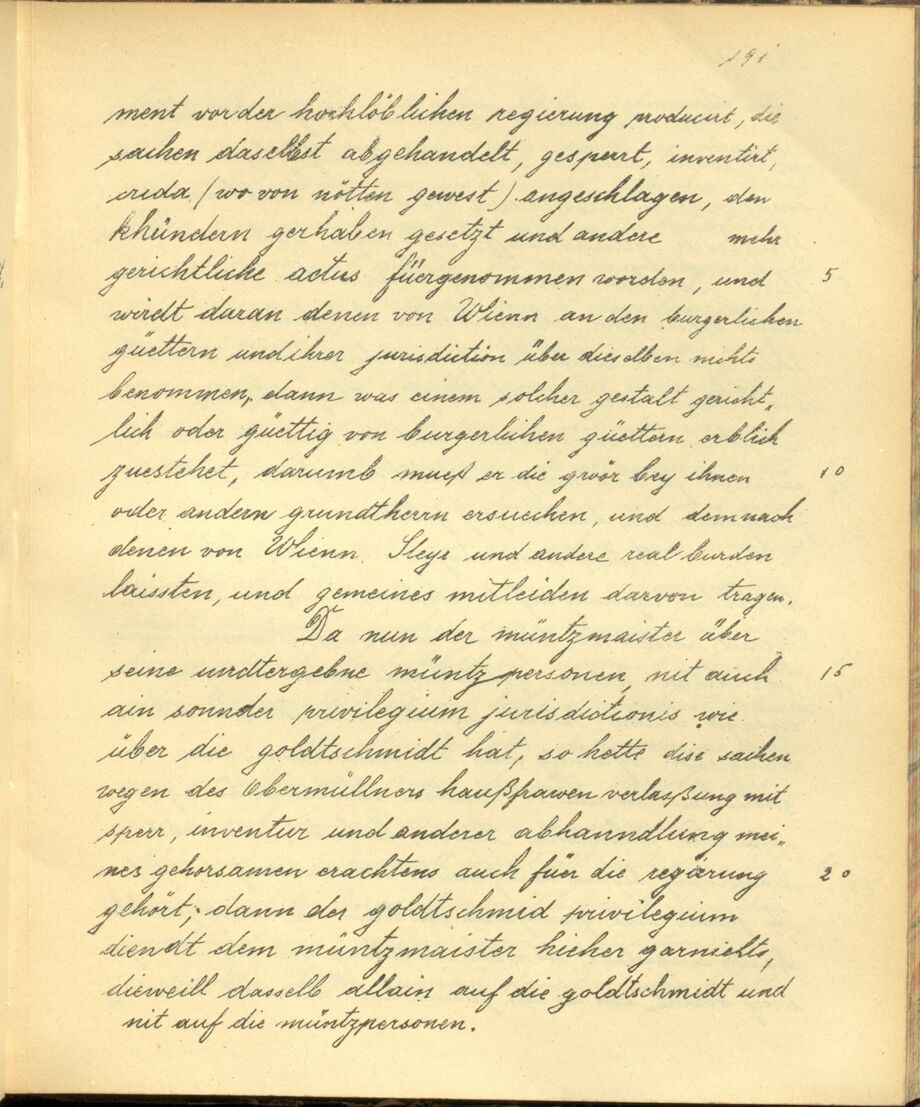 191
ment vor der hochlöblichen regierung producirt, die
sachen daselbst abgehandelt, gesperrt, inventirt,
crida (wo von nötten gewest) angeschlagen, den
khündern gerhaben gesetzt und andere mehr
gerichtliche actus füergenommen worden, und 5
wirdt daran denen von Wienn an den burgerlichen
güettern und ihrer jurisdiction über dieselben nichts
benommen, dann was einem solcher gestalt gericht„
lich oder güettig von burgerlichen güettern erblich
zuestehet, darumb muesß er die gwör bey ihnen 10
oder andern grundtherrn ersuechen, und demnach
denen von Wienn Steyr und andere real burden
laissten, und gemeines mitleiden darvon tragen.
Da nun der müntzmaister über
seine undtergebne müntz personen, nit auch 15
ain sonnder privilegium jurisdictionis wie
über die goldtschmidt hat, so hette dise sachen
wegen des Obermüllners haußfrawen verlaßung mit
sperr, inventur und anderer abhanndlung mei„
nes gehorsamen erachtens auch für die regierung 20
gehört; dann der goldtschmid privilegium
diendt dem müntzmaister hieher garnichts,
dieweill dasselb allain auf die goldtschmidt und
nit auf die müntzpersonen.